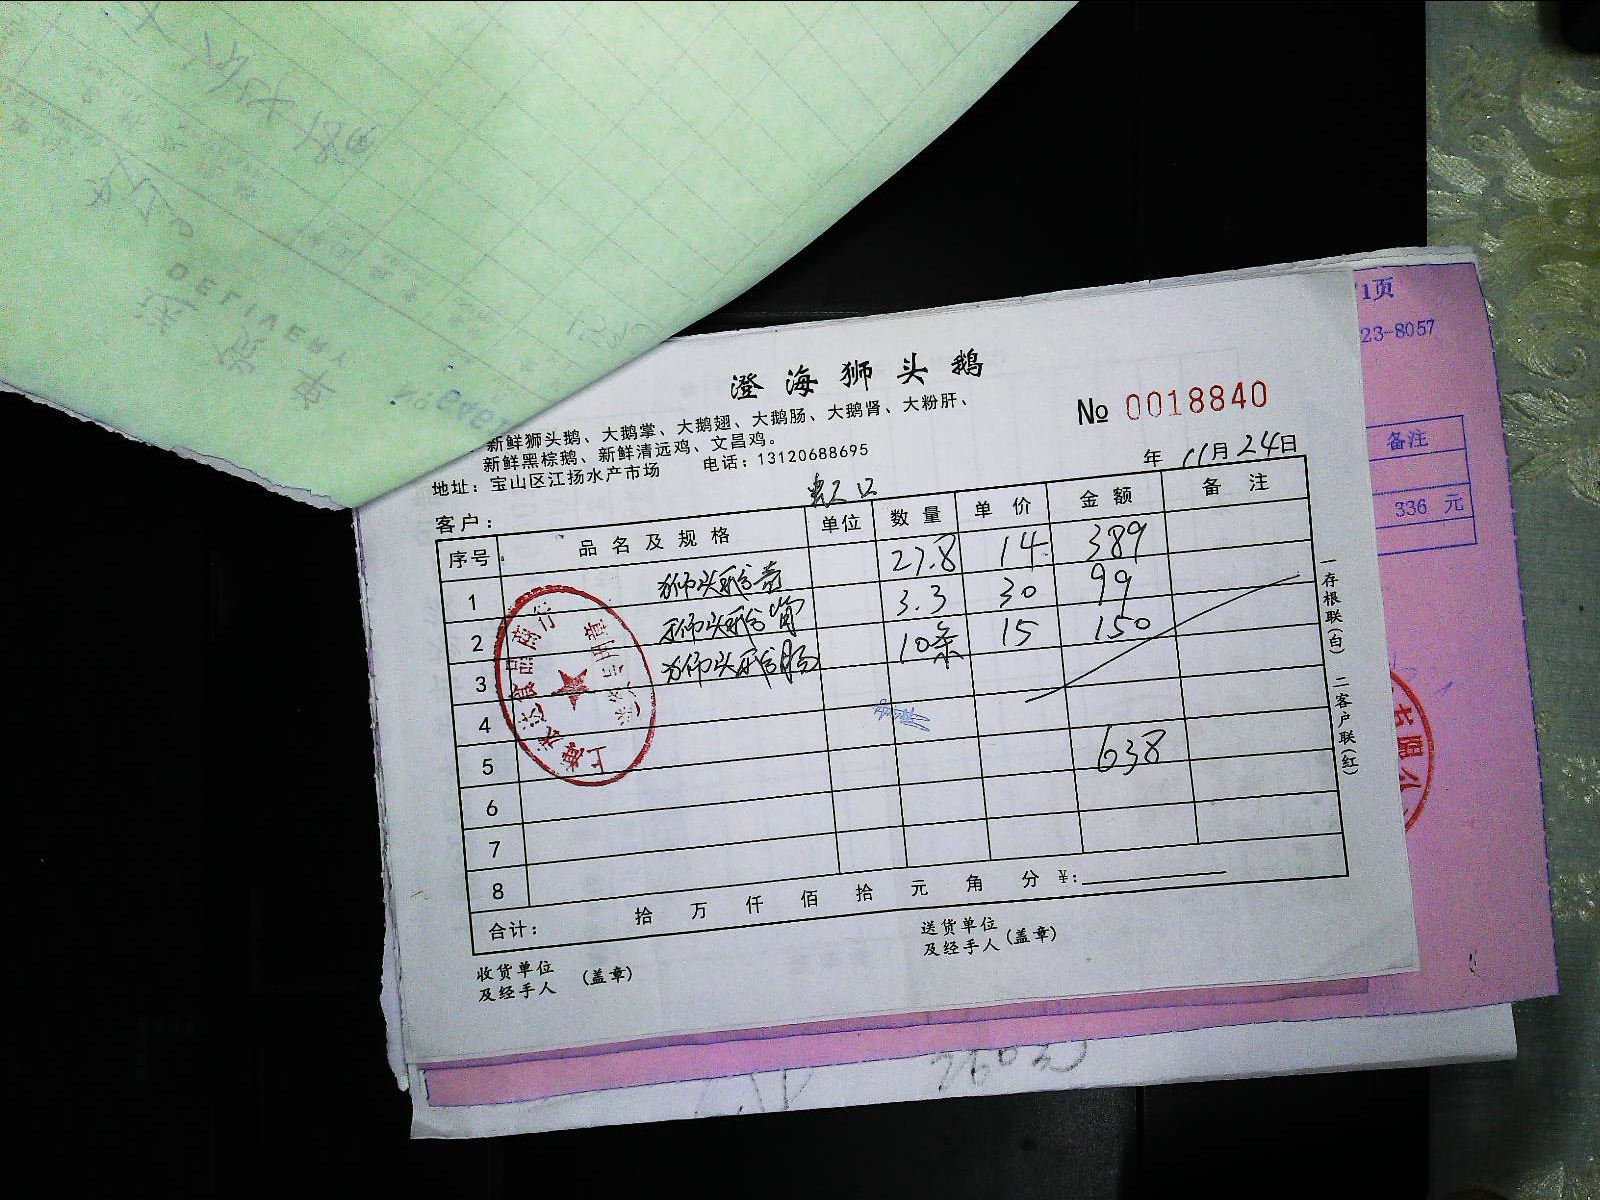 DELIVERY
1页
23-8057
备注
336 元
澄海狮头鹅
新鲜狮头鹅、大鹅掌、大鹅翅、大鹅肠、大鹅肾、大粉肝、
新鲜黑棕鹅、新鲜清远鸡、文昌鸡。
地址：宝山区江扬水产市场 电话：13120688695
№ 0018840
客户：
年 11月24日
序号 品名及规格 单位 数量 单价 金额 备注
1 狮头鹅 27.8 14 389
2 狮头鹅 3.3 30 99
3 狮头鹅肠 10条 15 150
4
5 638
6
7
8
合计： 拾 万 仟 佰 拾 元 角 分 ¥：
收货单位
及经手人 (盖章)
送货单位
及经手人(盖章)
一存根联(白) 二客户联(红)